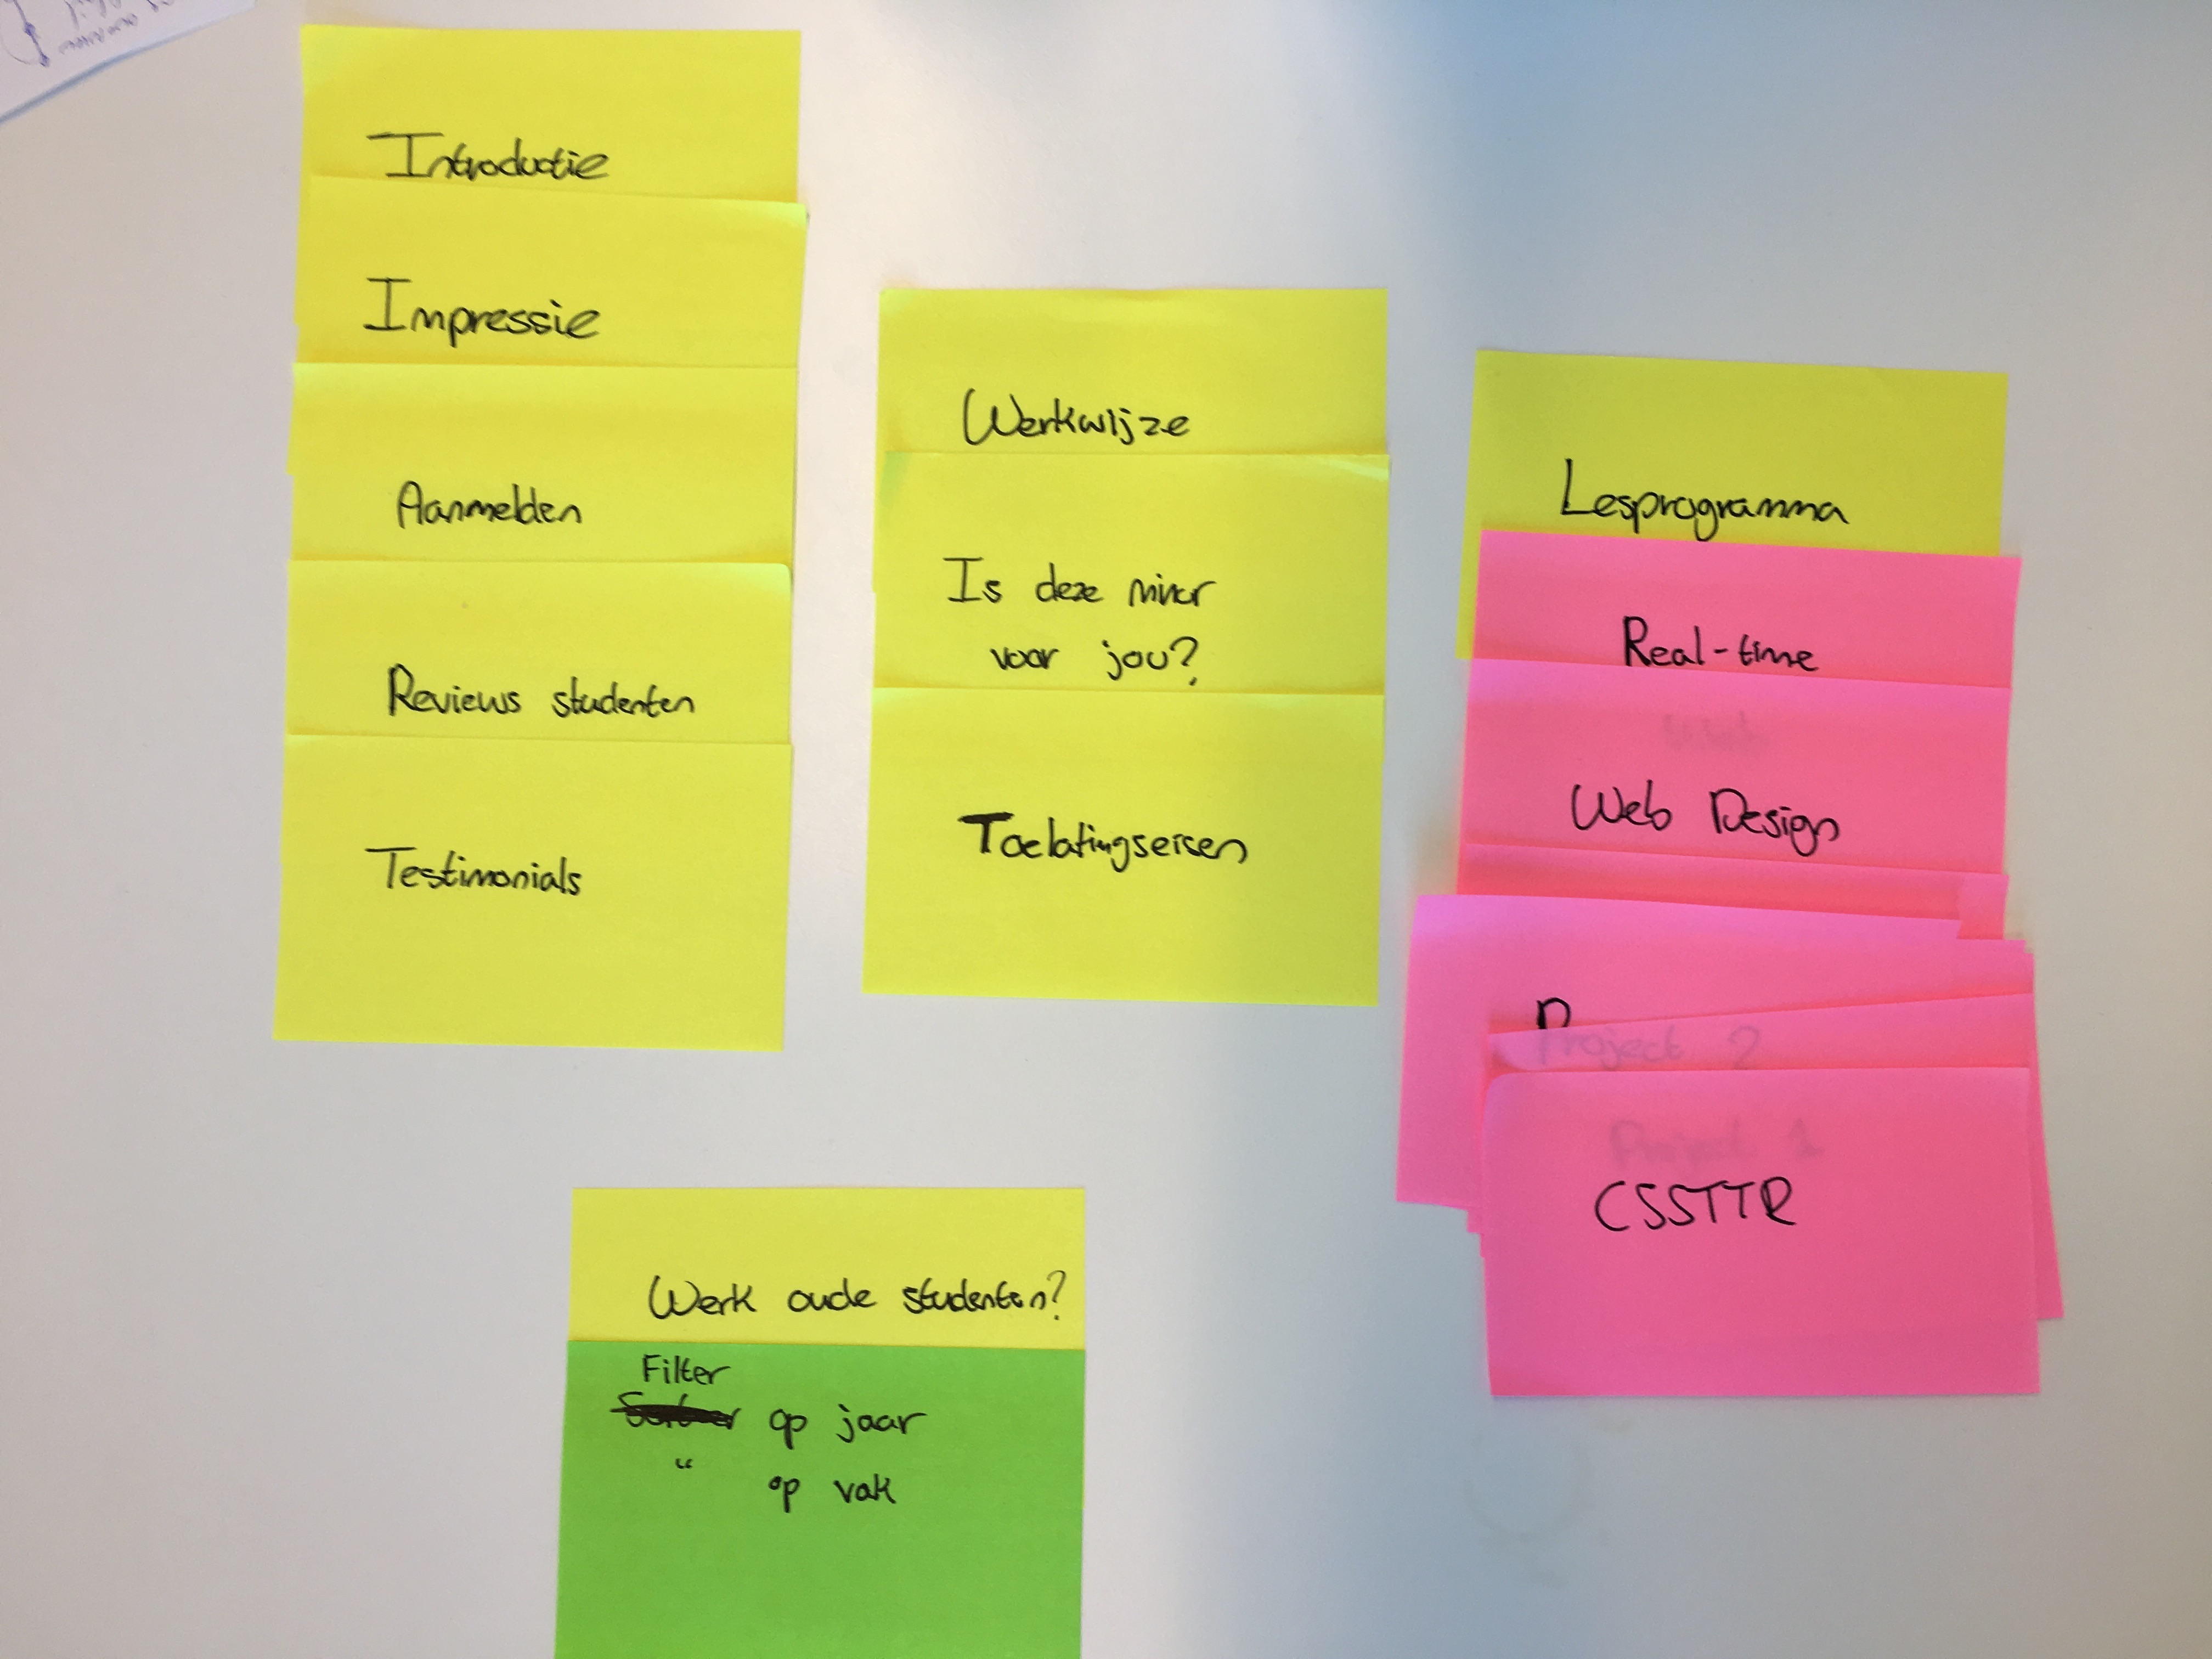 Introductie
Impressie
Aanmelden
Reviews studenten
Testimonials
Werkwijze
Is deze minor
voor jou?
Toelatingseisen
Lesprogramma
Real-time
Web Design
Project 2
Project 1
CSSTTR
Werk oude studenten?
Filter
op jaar
" op vak